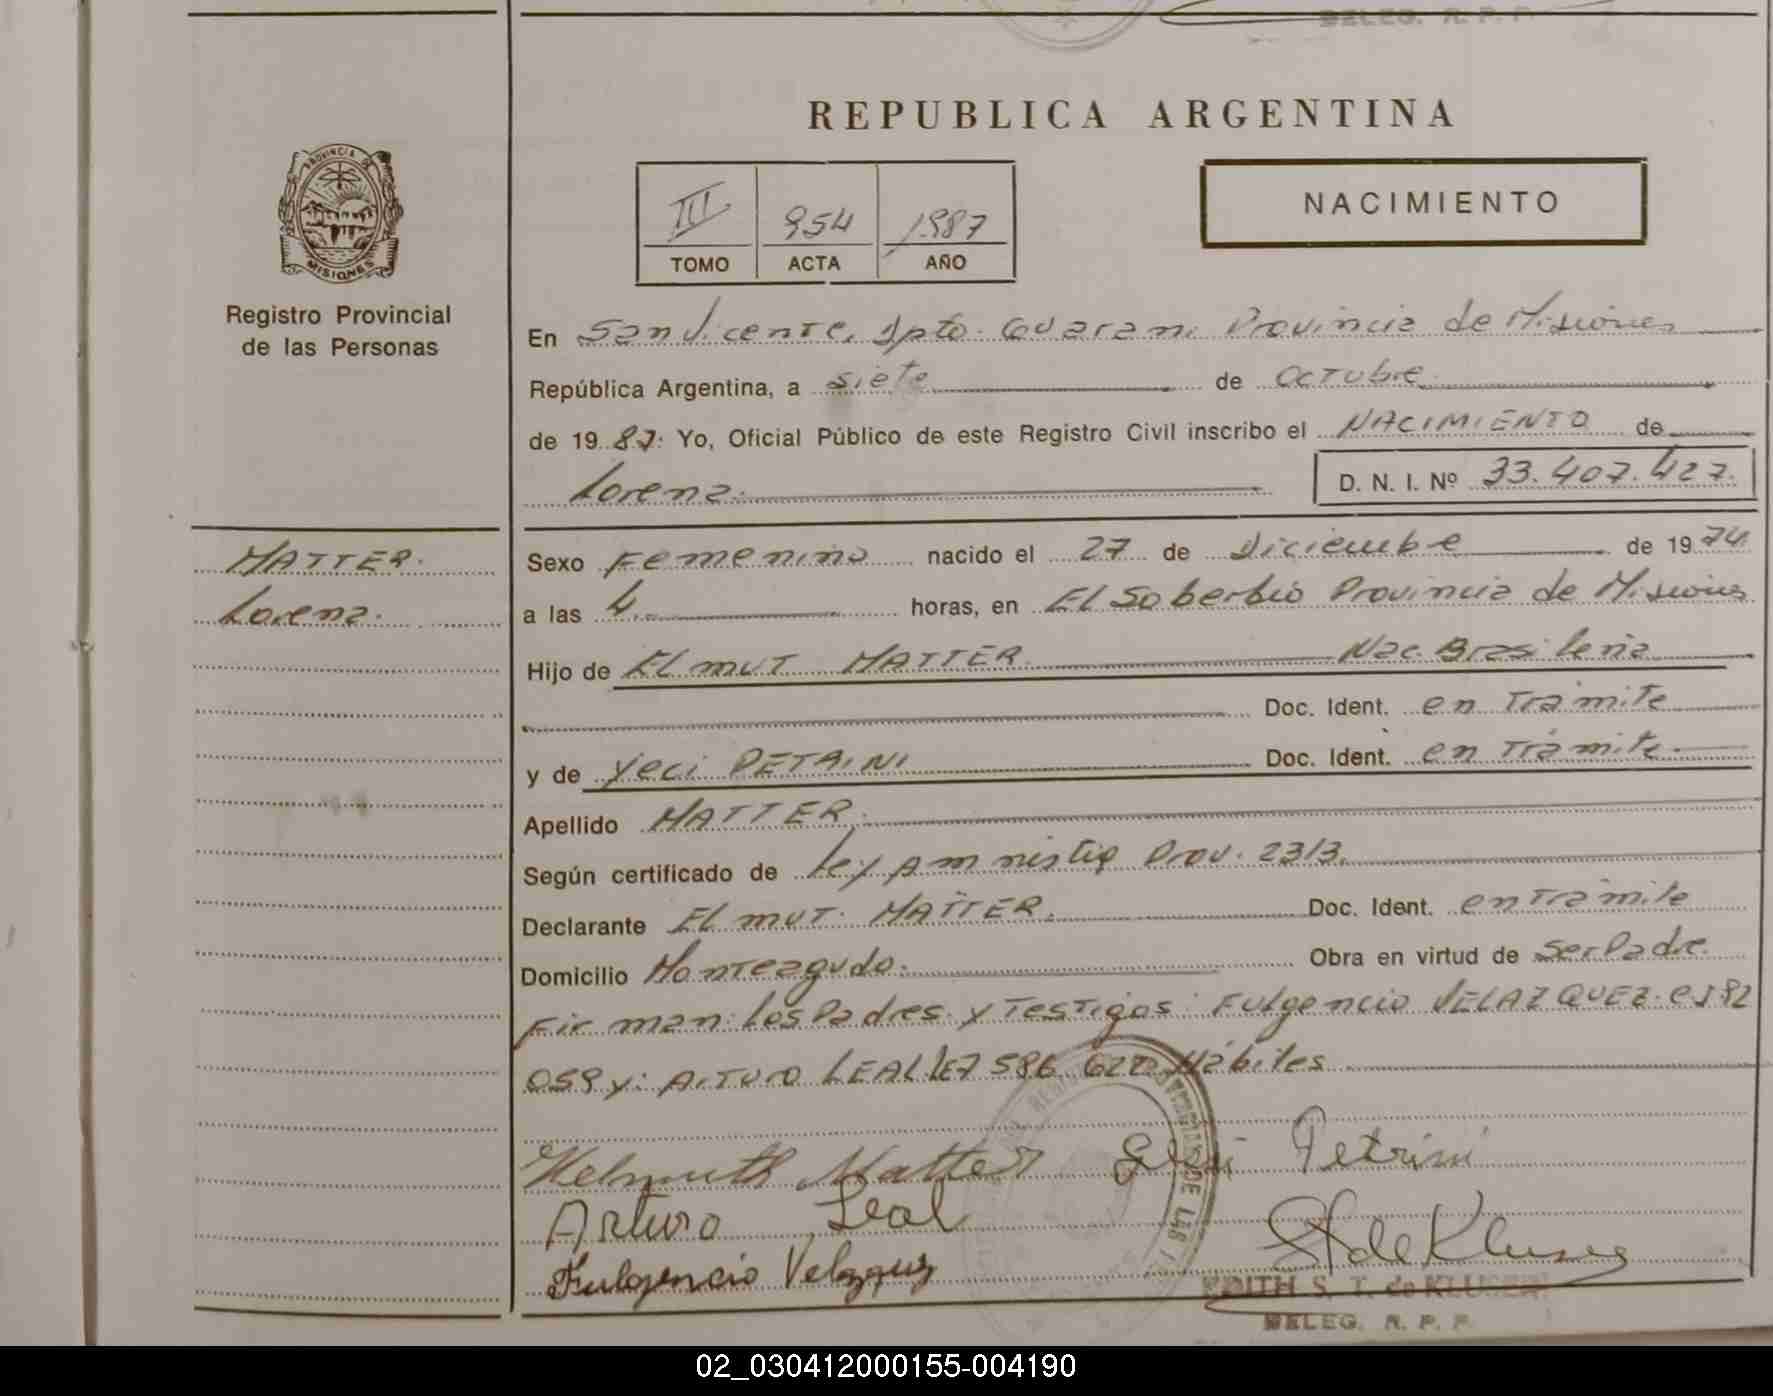 DELEG. R. P. P.
REPUBLICA ARGENTINA
PROVINCIA DE
MISIONES
III 954 1987
TOMO ACTA AÑO
NACIMIENTO
Registro Provincial
de las Personas
En San Vicente, Dpto. Guarani Provincia de Misiones
República Argentina, a siete de Octubre
de 1987. Yo, Oficial Público de este Registro Civil inscribo el NACIMIENTO de
Lorena. D. N. I. Nº 33.407.427.
MATTER.
Lorena.
Sexo Femenino nacido el 27 de Diciembre de 1974
a las 4. horas, en El Soberbio Provincia de Misiones
Hijo de ELMUT MATTER Nac. Brasileña
Doc. Ident. en Trámite
y de Yeci PETRINI Doc. Ident. en Trámite
Apellido MATTER.
Según certificado de Ley Amnistia Prov. 2313.
Declarante ELMUT. MATTER. Doc. Ident. en Trámite
Domicilio Monteagudo. Obra en virtud de Ser Padre.
Firman: Los Padres y Testigos: Fulgencio VELAZQUEZ. CI 82
059 y: Arturo LEAL LE7 586 622 Hábiles
Helmuth Matter Petrini
Arturo Leal
Fulgencio Velazquez
EDITH S. T. de KLUSEN
DELEG. R. P. P.
02_030412000155-004190